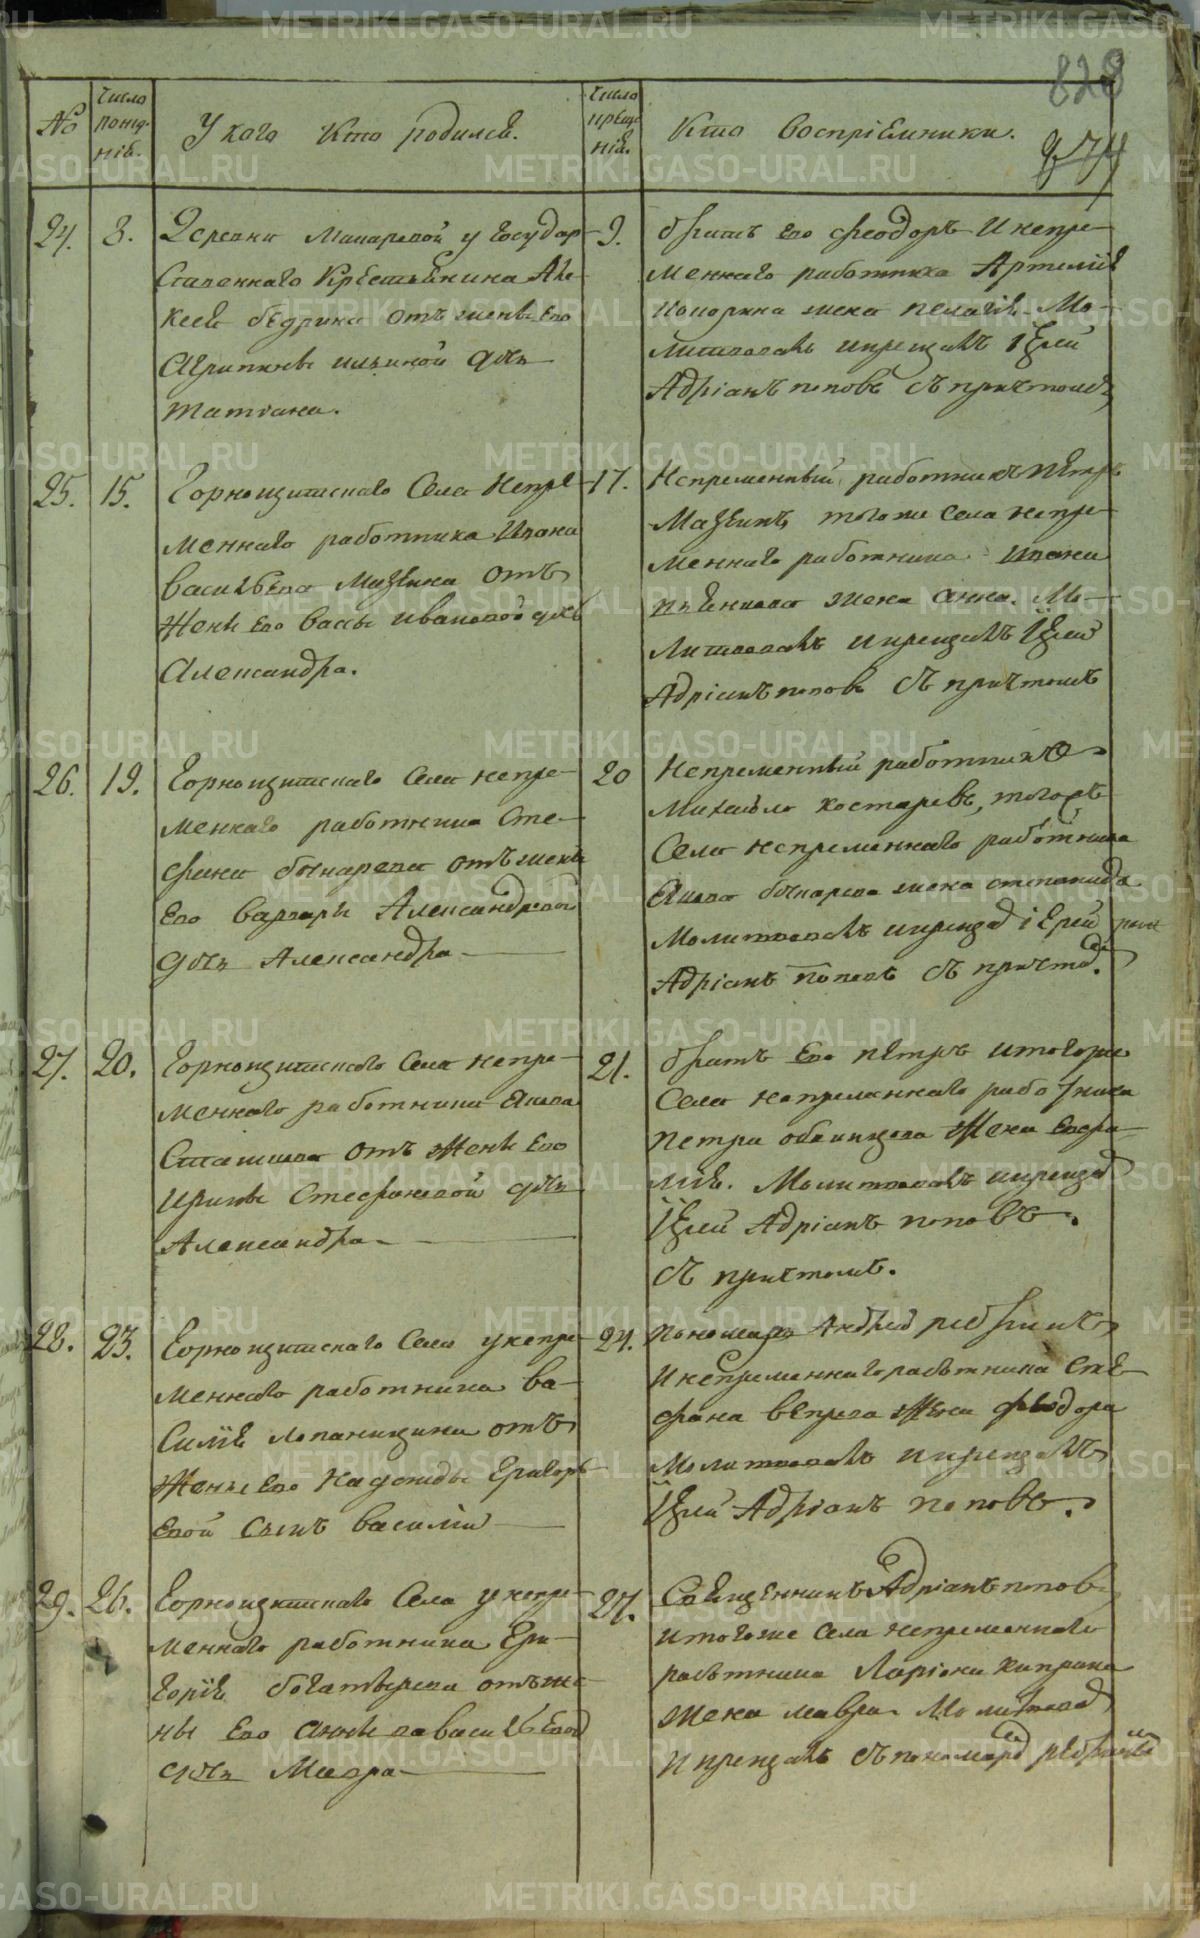 828
№
Число рожд- нія.
У кого кто родился.
Число крещенія.
Кто воспріемники.
24.
8.
Деревни Макаровой у Государ-
ственнаго Крестьянина Але-
ксея бедрина отъ жены Его
Агрипины ильиной дочь
татіана.
9.
братъ Его феодоръ И непре-
меннаго работника Артемія
жена пелагія. Мо-
литвовалъ и крещалъ Іерей
Адріанъ поповъ съ причтомъ
25.
15.
Горнощитскаго Села непре-
меннаго работника Ивана
василье­ва Мазгина отъ
Жены Его Вассы ивановой дочь
Александра.
17.
Непременный работникъ петръ
тогоже Села непре-
меннаго работника ивана
жена анна. Мо-
литвовалъ и крещалъ Іерей
Адріанъ поповъ съ причтомъ
26.
19.
Горнощитскаго Села непре-
меннаго работника Сте-
фана отъ жены
Его варвары Александровой
дочь Александра
20
Непременный работникъ
Михайло костаревъ, тогожъ
Села непременнаго работника
жена степанида
Молитвовалъ и крещалъ іерей
Адріанъ поповъ съ причтомъ.
27.
20.
Горнощитскаго Села непре-
меннаго работника Якова
отъ Жены Его
ирины Стефановой дочь
Александра
21.
братъ Его петръ и тогоже
Села непременнаго работника
петра Жена Евфи-
мія. Молитвовалъ и крещалъ
Іерей Адріанъ поповъ.
съ причтомъ.
28.
23.
Горнощитскаго Села у непре-
меннаго работника ва-
силія лопаницина отъ
Жены Его надежды Григорь-
евой сынъ василій
24.
пономарь Андрей
и непременнаго работника Сте-
фана вепрева Жена феодора
Молитвовалъ и крещалъ
Іерей Адріанъ поповъ.
29.
26.
Горнощитскаго Села у непре-
меннаго работника Гри-
горія богатырева отъ же-
ны Его анны васильевой
дочь Мавра
27.
Священникъ Адріанъ поповъ
и тогоже Села непременнаго
работника Ларіона
жена мавра. Молитвовалъ
и крещалъ съ пономаремъ
METRIKI.GASO-URAL.RU